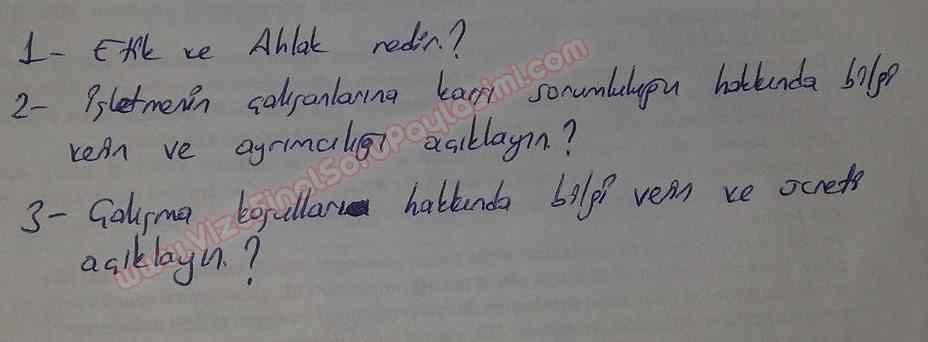 1- Etik ve Ahlak nedir.?
2- İşletmenin çalışanlarına karşı sorumluluğu hakkında bilgi
verin ve ayrımcılığı açıklayın.?
3- Çalışma koşulları hakkında bilgi verin ve ücreti
açıklayın.?
www.VizeFinalSoruPaylasimi.com